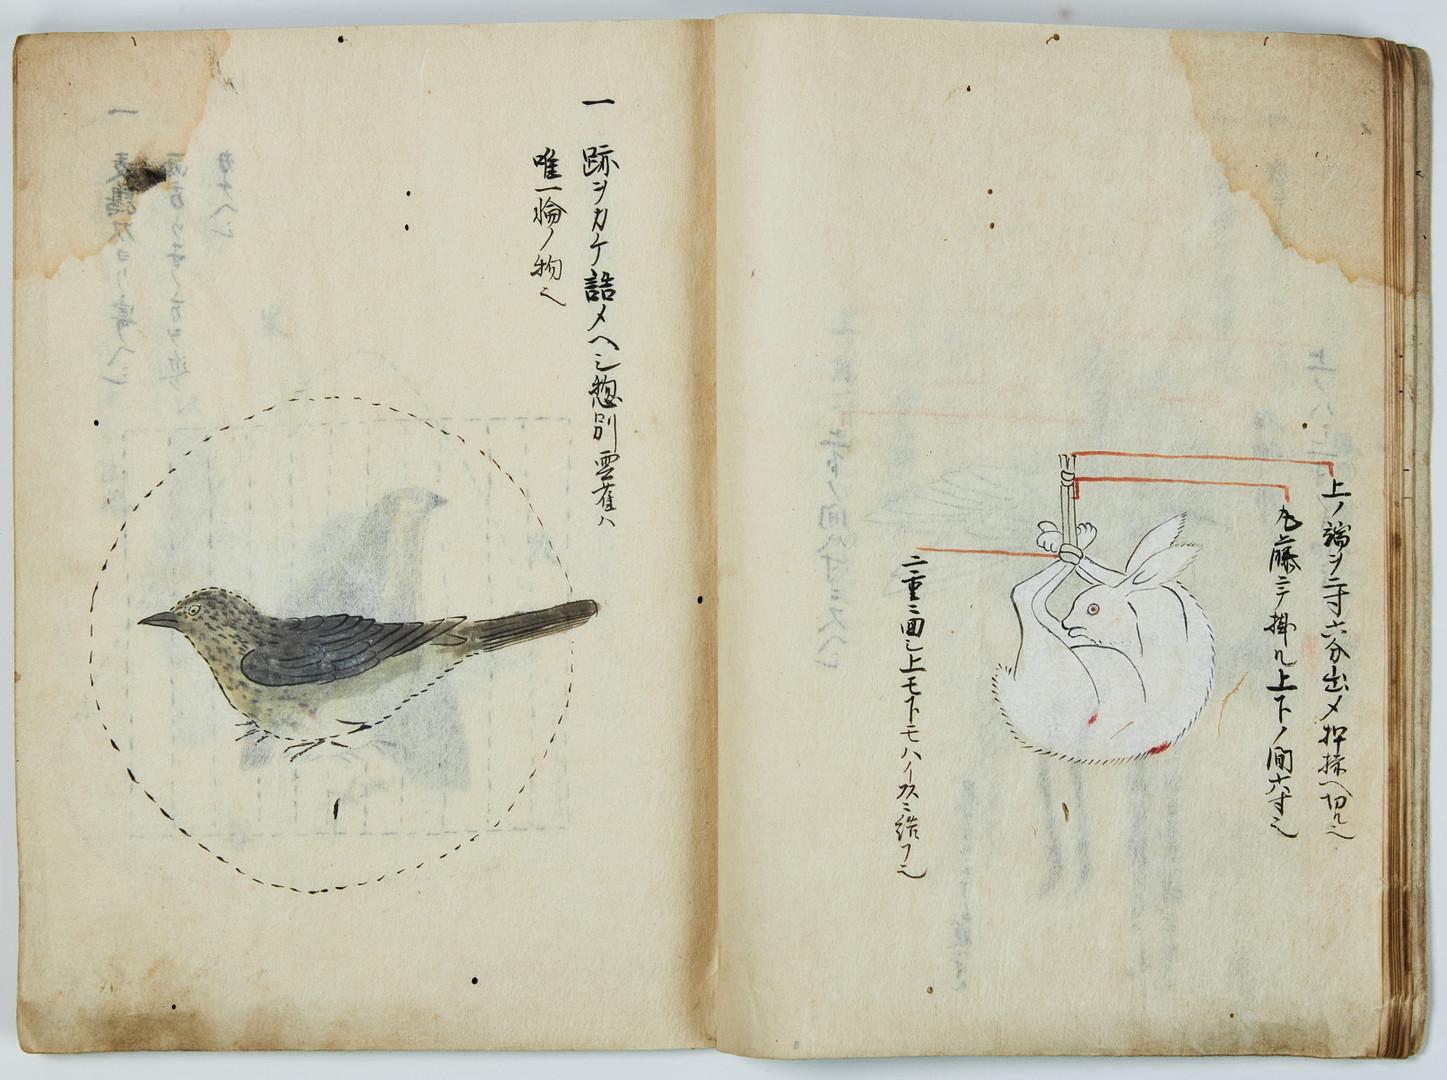 上ノ端ヲ二寸六分出メ押揉ヘ切ル也
丸藤ニテ掛ル上下ノ間六寸也
二重ニ回シ上モ下モハ
結フ也
一 跡ヲカケ詰メヘシ惣別雲雀ハ
唯一輪ノ物也